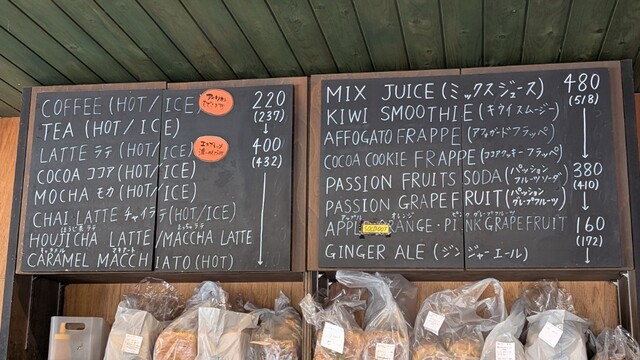 COFFEE (HOT/ICE) 220
(237)
TEA (HOT/ICE)
LATTE ラテ (HOT/ICE) 400
(432)
COCOA ココア (HOT/ICE)
MOCHA モカ (HOT/ICE)
CHAI LATTE チャイラテ (HOT/ICE)
ほうじ茶ラテ まっちゃラテ
HOUJICHA LATTE/MACCHA LATTE
CARAMEL MACCHIATO (HOT)
MIX JUICE (ミックスジュース) 480
(518)
KIWI SMOOTHIE (キウイスムージー)
AFFOGATO FRAPPE (アフォガードフラッペ)
COCOA COOKIE FRAPPE (ココアクッキーフラッペ)
PASSION FRUITS SODA (パッションフルーツソーダ) 380
(410)
PASSION GRAPEFRUIT (パッショングレープフルーツ)
アップル オレンジ ピンクグレープフルーツ
APPLE ORANGE・PINK GRAPEFRUIT 160
SOLD OUT
(172)
GINGER ALE (ジンジャーエール)